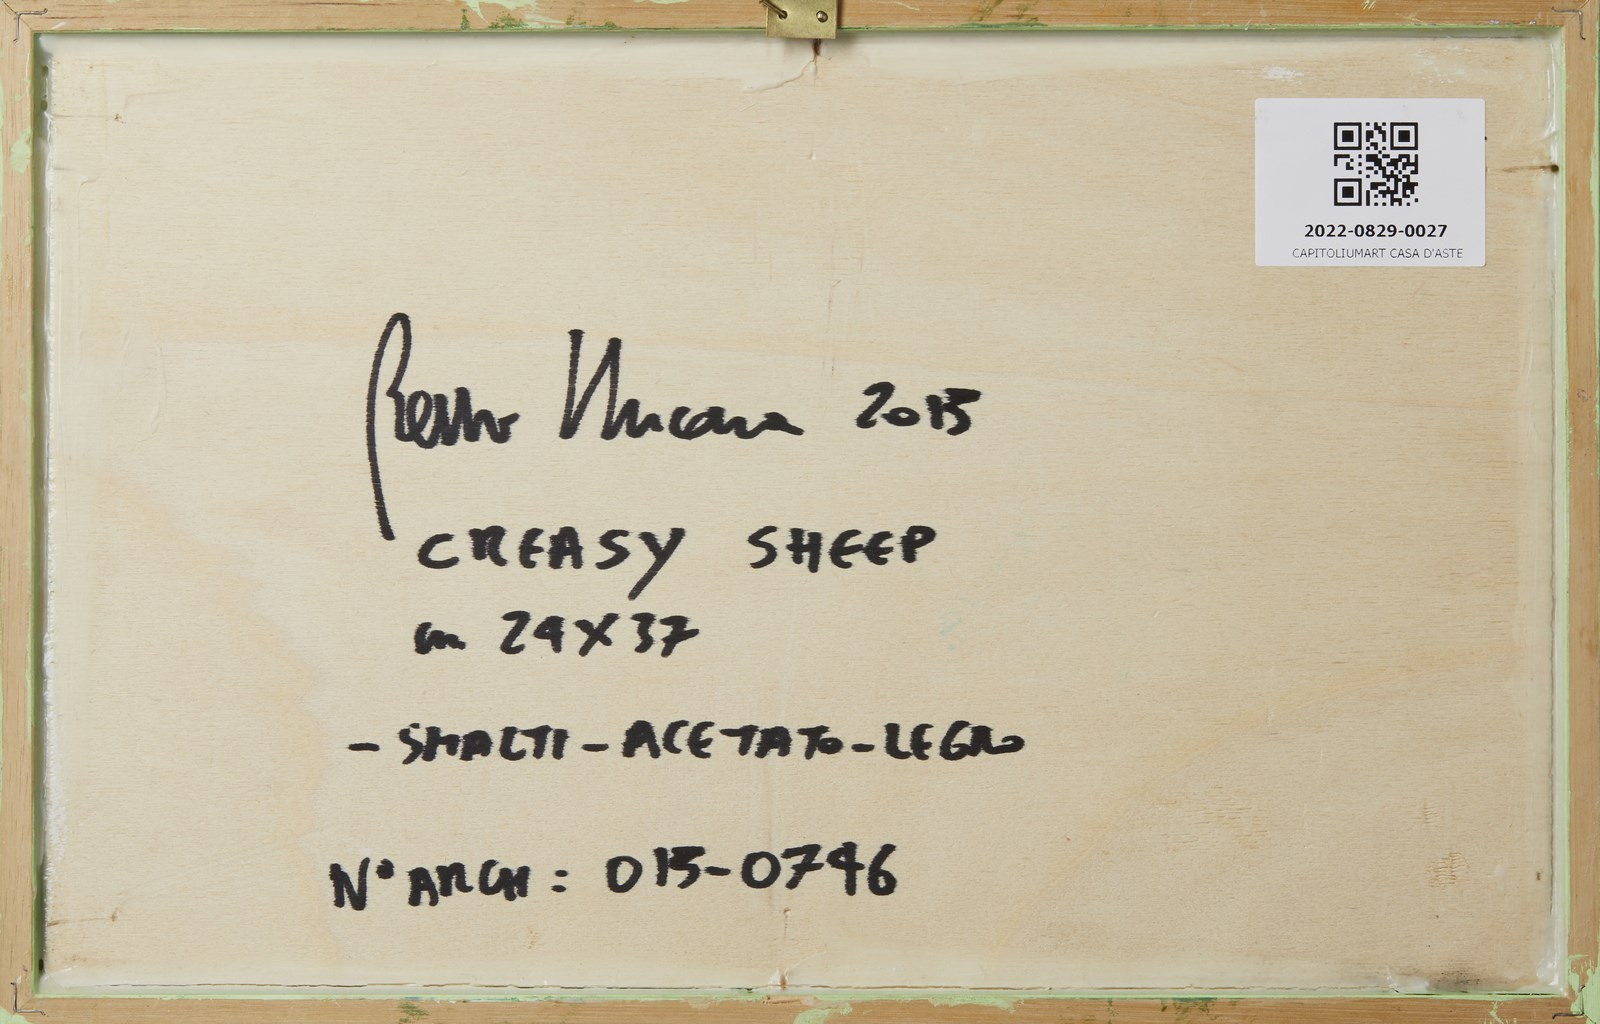 2022-0829-0027
CAPITOLIUMART CASA D'ASTE
2015
CREASY SHEEP
cm 24X37
- SMALTI - ACETATO - LEGNO
N° ARCH: 015-0746